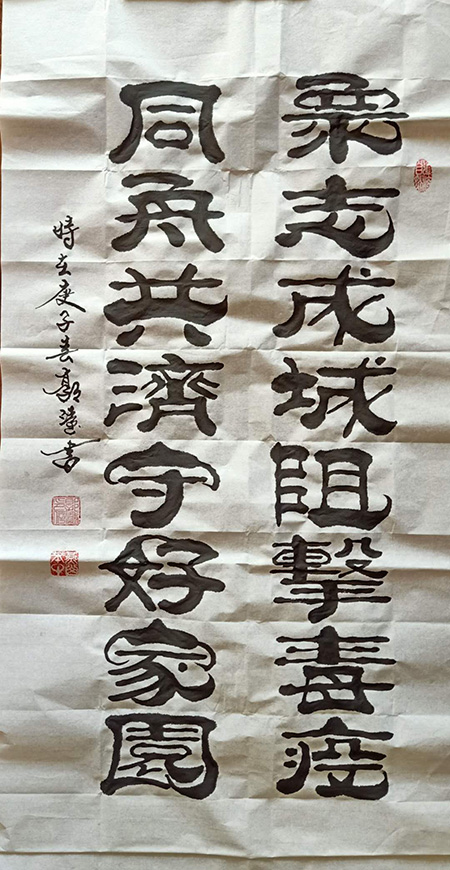 衆志成城阻擊毒疫
同舟共濟守好家園
時在庚子春郭書